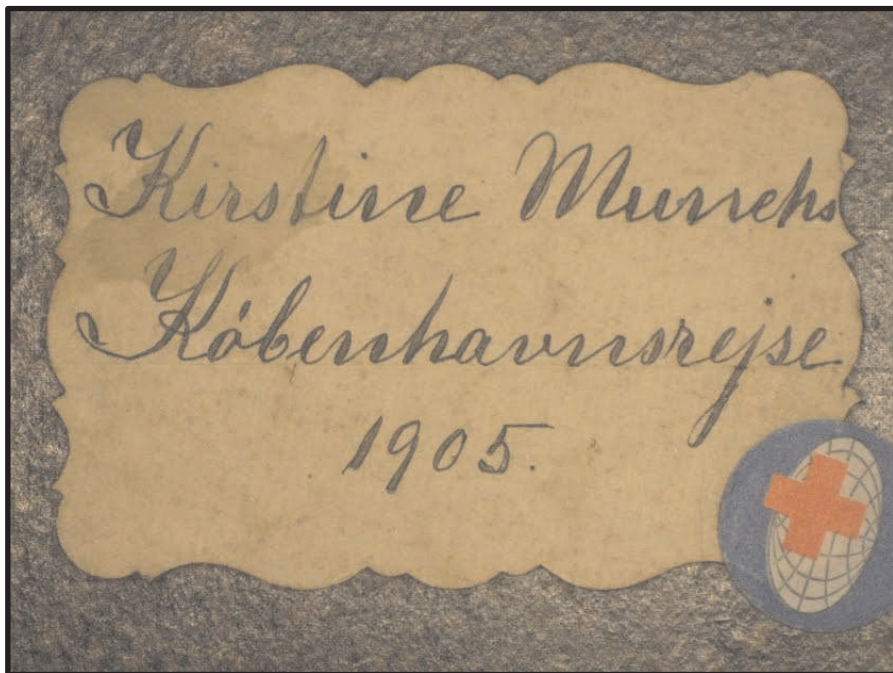 Kirstine Munchs
Københavnsrejse
1905.